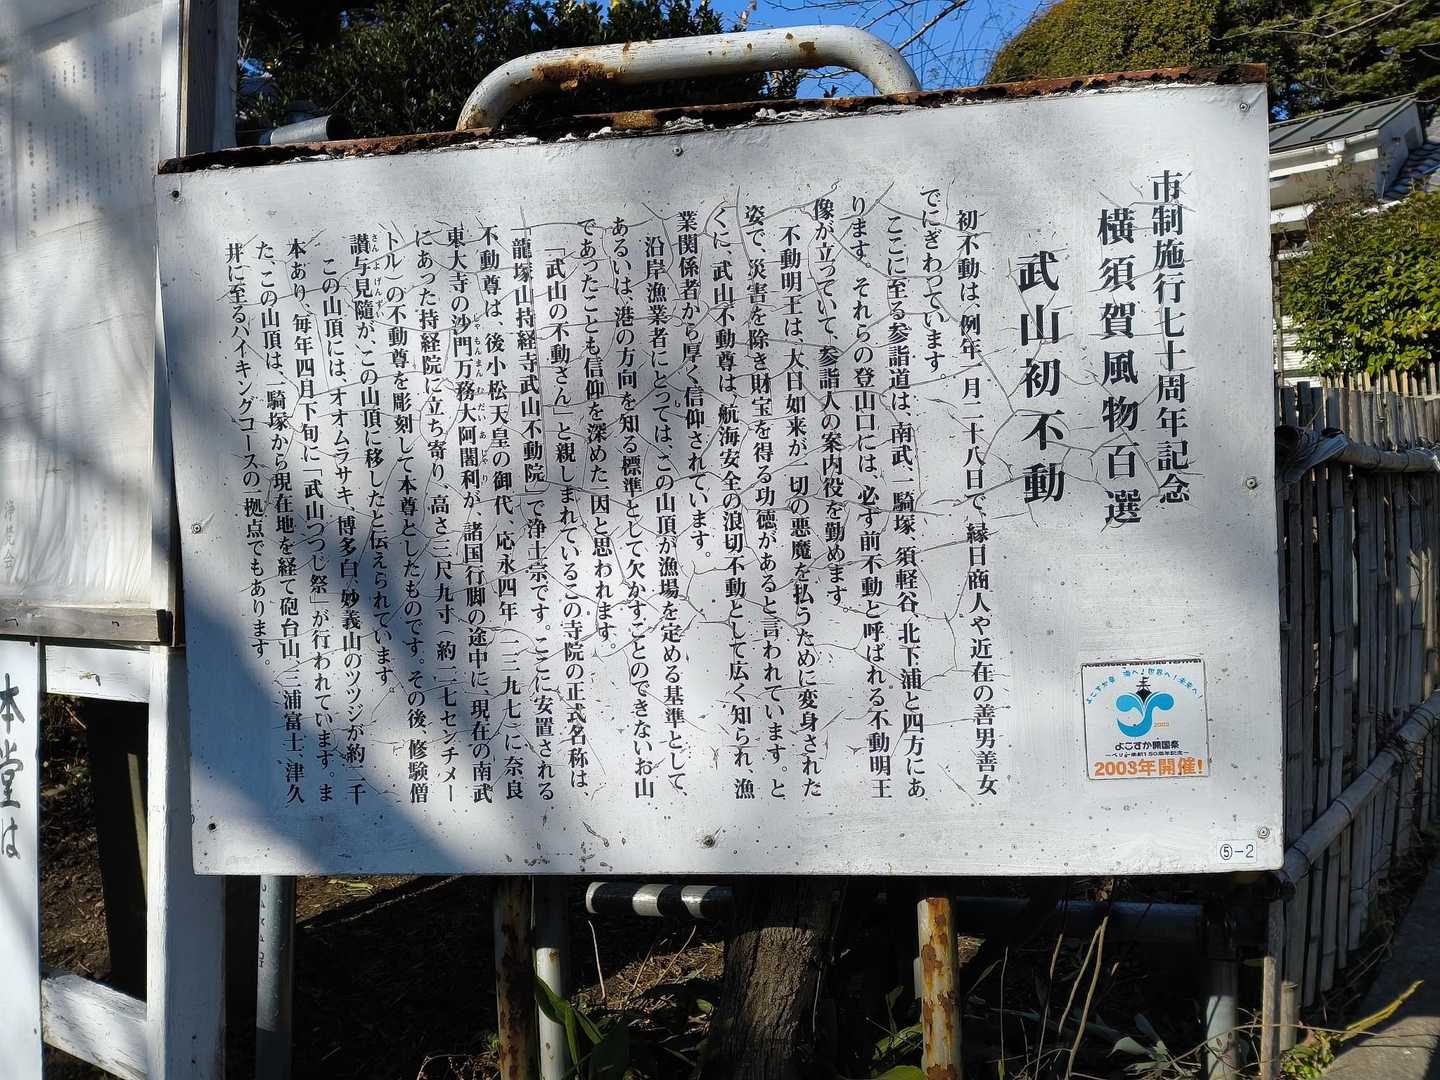 市制施行七十周年記念
横須賀風物百選
武山初不動
初不動は、例年一月二十八日で、縁日商人や近在の善男善女
でにぎわっています。
ここに至る参詣道は、南武、一騎塚、須軽谷、北下浦と四方にあ
ります。それらの登山口には、必ず前不動と呼ばれる不動明王
像が立っていて、参詣人の案内役を勤めます。
不動明王は、大日如来が一切の悪魔を払うために変身された
姿で、災害を除き財宝を得る功徳があると言われています。と
くに、武山不動尊は、航海安全の浪切不動として広く知られ、漁
業関係者から厚く信仰されています。
沿岸漁業者にとっては、この山頂が漁場を定める基準として、
あるいは、港の方向を知る標準として欠かすことのできないお山
であったことも信仰を深めた一因と思われます。
「武山の不動さん」と親しまれているこの寺院の正式名称は、
「龍塚山持経寺武山不動院」で浄土宗です。ここに安置される
不動尊は、後小松天皇の御代、応永四年(一三九七)に奈良
東大寺の沙門万務大阿闍利が、諸国行脚の途中に、現在の南武
にあった持経院に立ち寄り、高さ三尺九寸(約一二七センチメー
トル)の不動尊を彫刻して本尊としたものです。その後、修験僧
讃与見随が、この山頂に移したと伝えられています。
この山頂には、オオムラサキ、博多白、妙義山のツツジが約二千
本あり、毎年四月下旬に「武山つつじ祭」が行われています。ま
た、この山頂は、一騎塚から現在地を経て砲台山、三浦富士、津久
井に至るハイキングコースの一拠点でもあります。
よこすか発 海へ!世界へ!未来へ!
2003
よこすか開国祭
ーペリー来航150周年記念ー
2003年開催!
⑤-2
本堂は